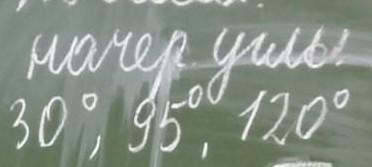 начер. углы
30°, 95°, 120°